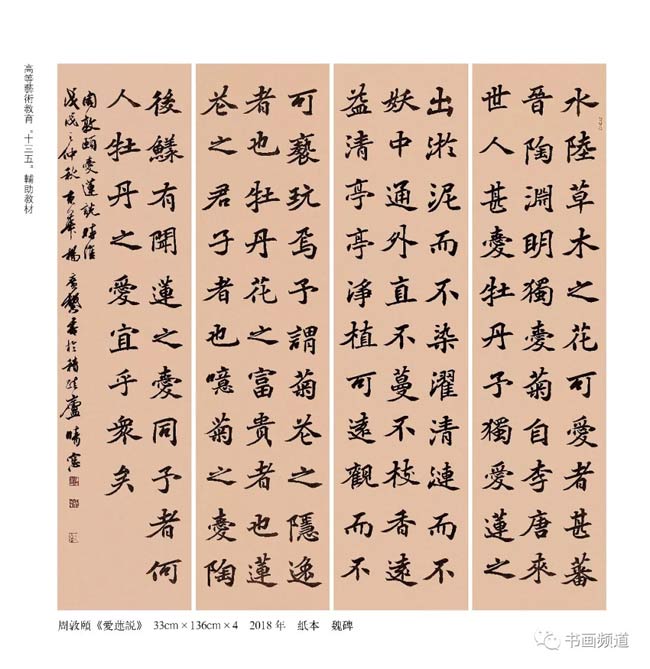 高等藝術教育“十三五”輔助教材
水陸草木之花可愛者甚蕃
晉陶淵明獨愛菊自李唐來
世人甚愛牡丹予獨愛蓮之
出淤泥而不染濯清漣而不
妖中通外直不蔓不枝香遠
益清亭亭淨植可遠觀而不
可褻玩焉予謂菊花之隱逸
者也牡丹花之富貴者也蓮
花之君子者也噫菊之愛陶
後鱻有聞蓮之愛同予者何
人牡丹之愛宜乎衆矣
周敦頤愛蓮說時維
戊戌之仲秋 楊 書於 廬晴窓
周敦頤《愛蓮説》 33cm×136cm×4 2018年 纸本 魏碑
书画频道